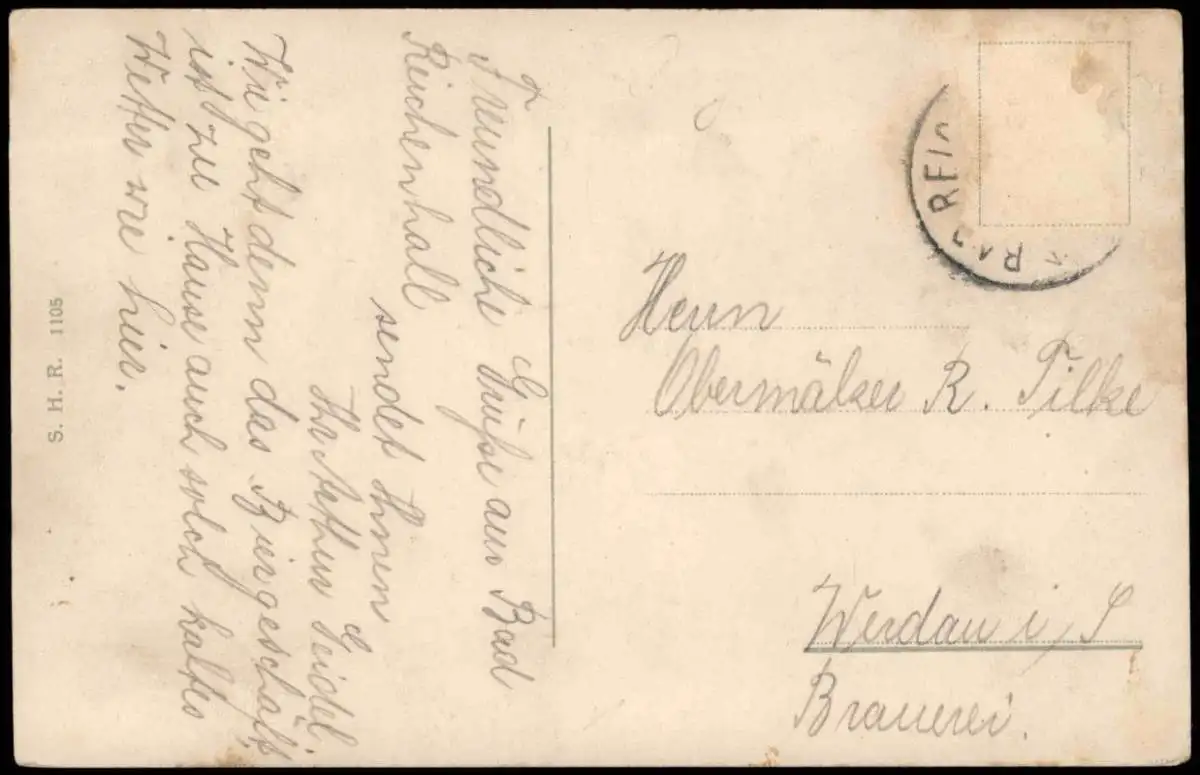 Freundliche Grüße aus Bad
Reichenhall
sendet Ihnen
Ihr Arthur Seidel.
Wie geht denn das Biergeschäft,
ist zu Hause auch solch kaltes
Wetter wie hier.
S. H. R. 1105
BAD REIC
Herrn
Obermälzer R. Tilke
Werdau i. S
Brauerei.